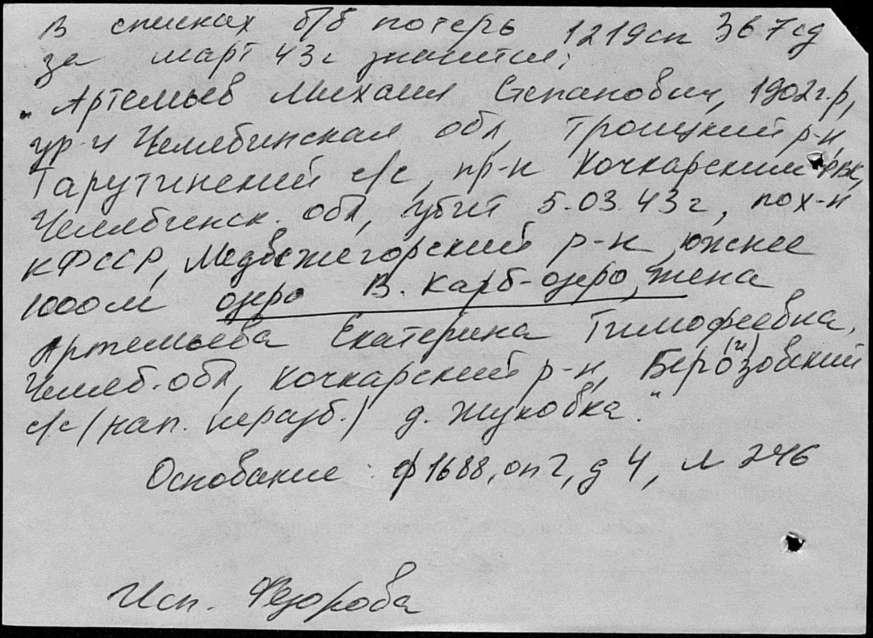 В списках б/б потерь 1219сп 367сд
за март 43г значится;
"Артемьев Михаил Степанович, 1902г.р,
ур-ц Челябинская обл, Троицкий р-н,
Тарутинский с/с, пр-н Кочкарским РВК,
Челябинск. обл, убит 5.03.43г, пох-н
КФССР, Медвежегорский р-н, южнее
1000м озро В. Карб-озро, жена
Артемьева Екатерина Тимофеевна,
Челяб.обл, Кочкарский р-н, Берозовский (и)
с/с (нап. неразб.) д. Жуковка."
Основание: ф1688, оп2, д 4, л 246
Исп. Федорова